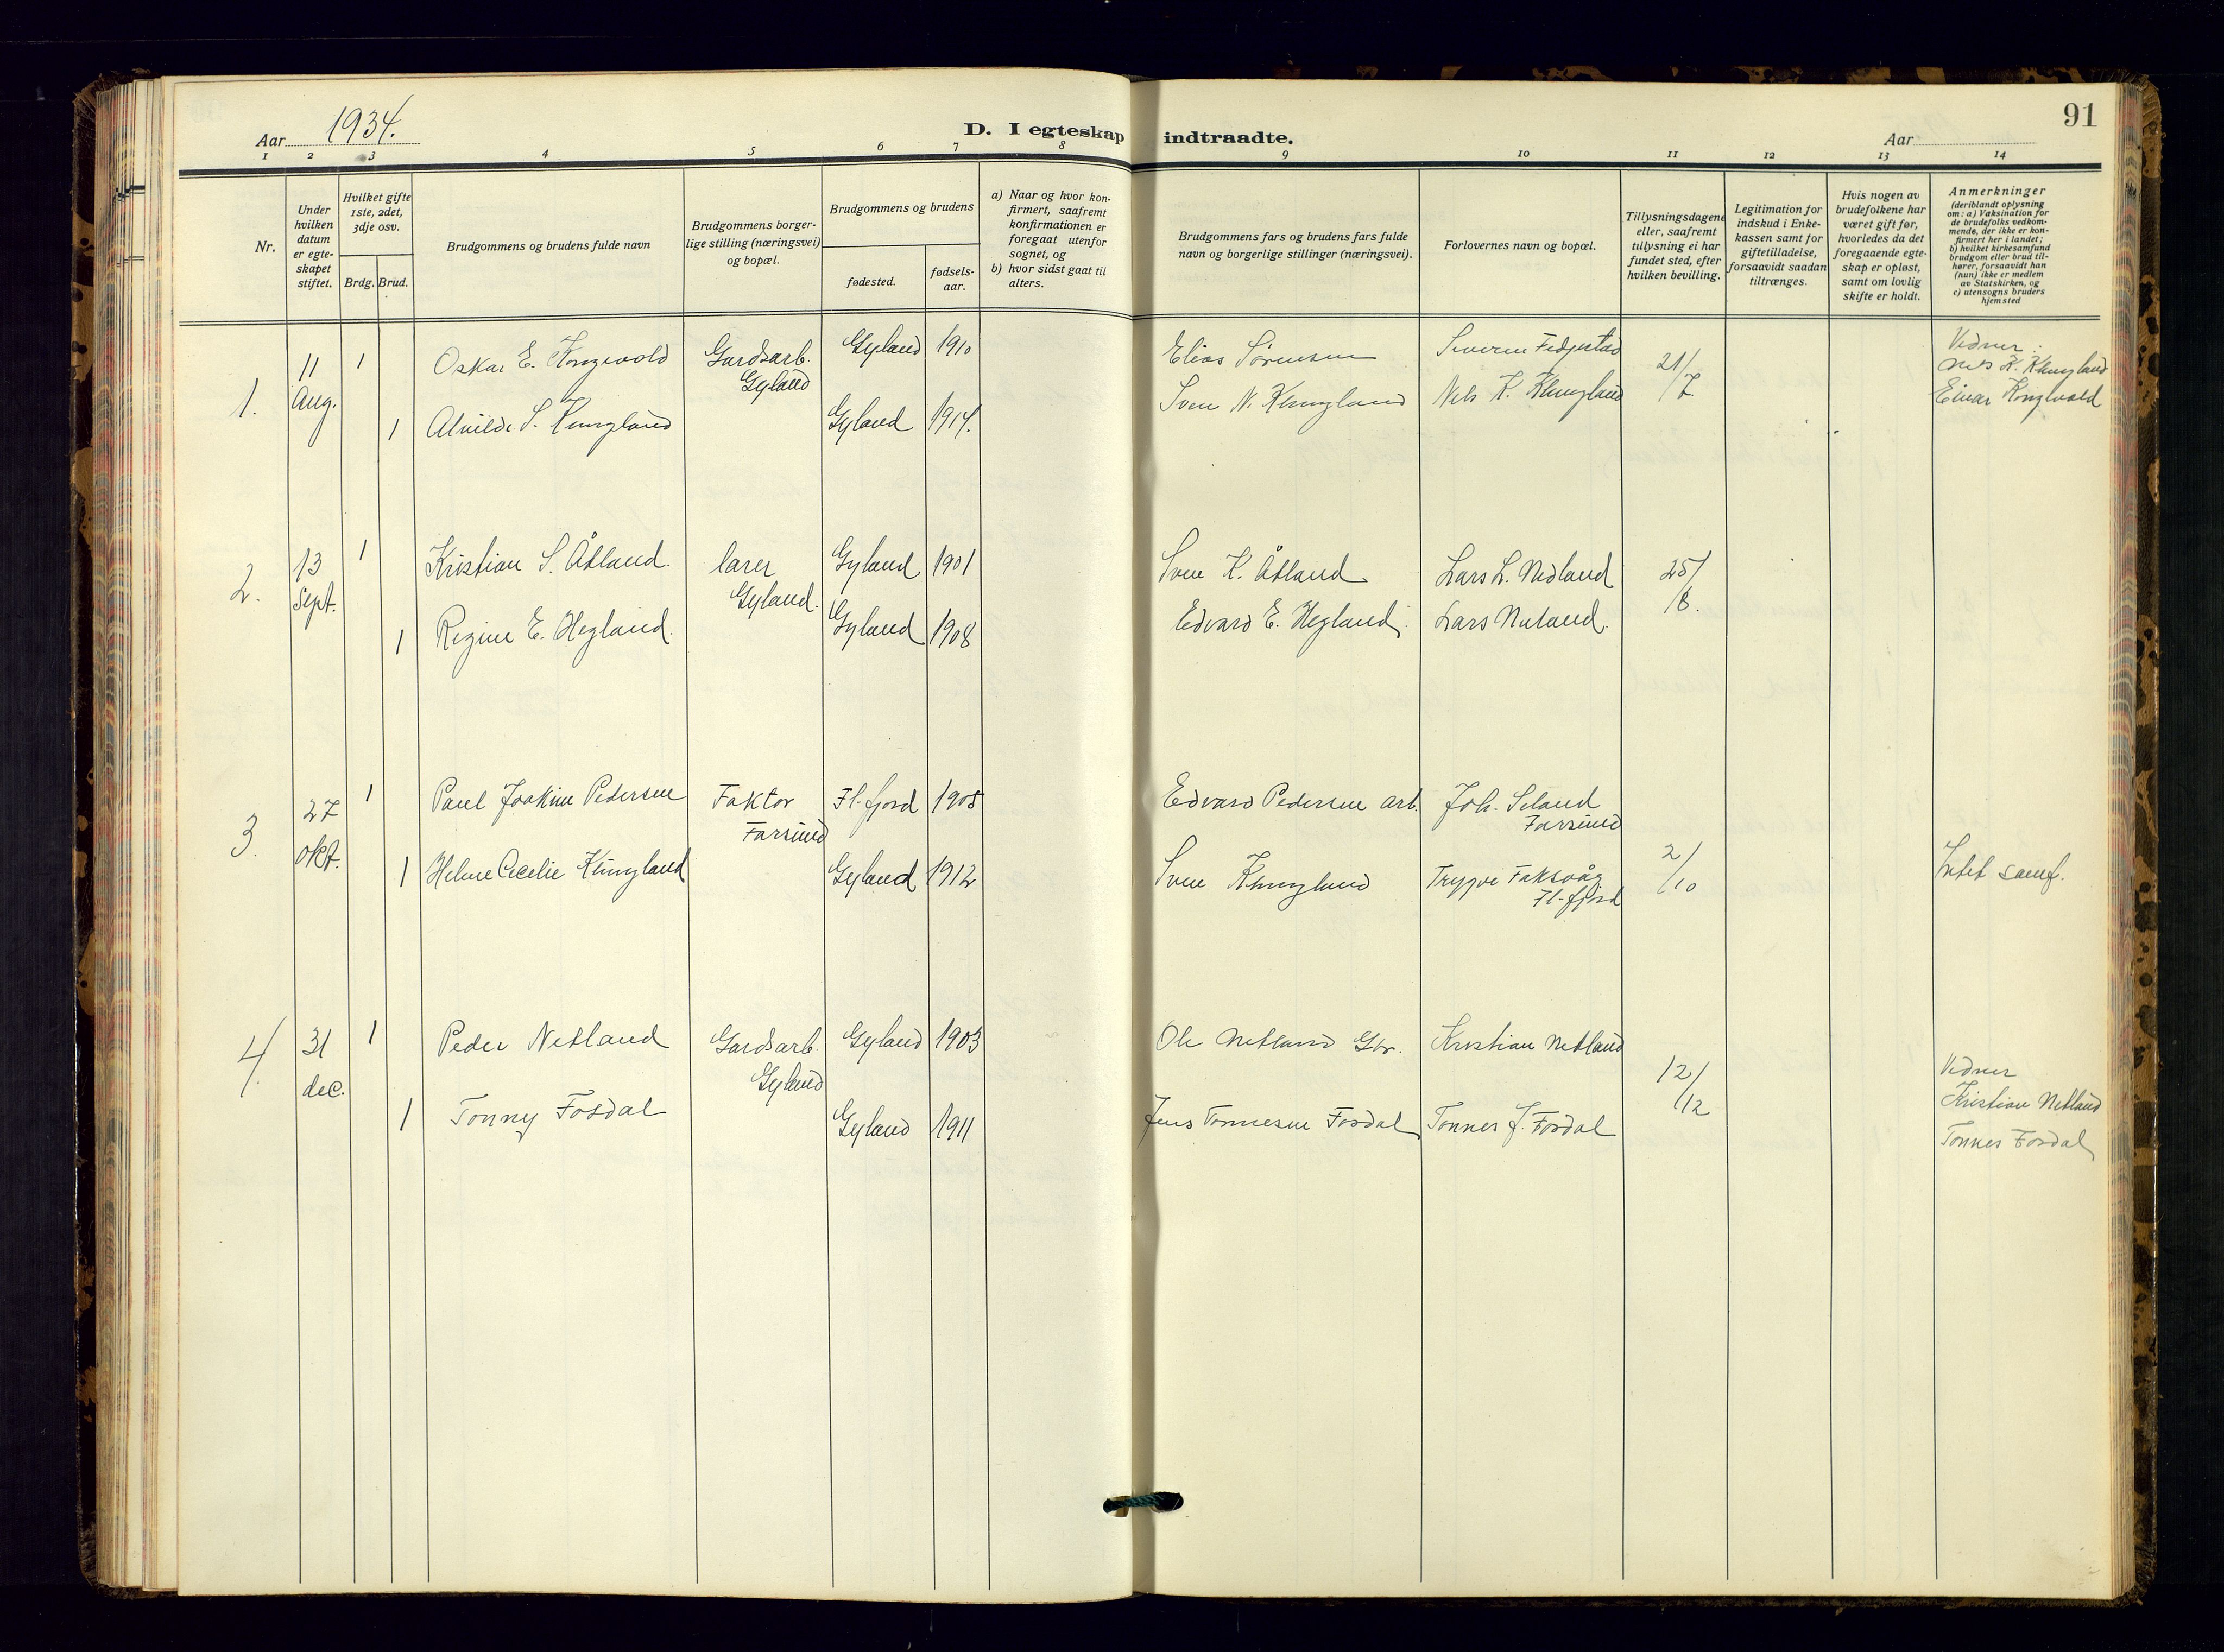 Aar 1934.
D. I egteskap indtraadte.
Aar
91
1 2 3 4 5 6 7 8 9 10 11 12 13 14
Nr.
Under hvilken datum er egteskapet stiftet.
Hvilket gifte 1ste, 2det, 3dje osv.
Brdg. Brud.
Brudgommens og brudens fulde navn
Brudgommens borgerlige stilling (næringsvei) og bopæl.
Brudgommens og brudens
fødested.
fødselsaar.
a) Naar og hvor konfirmert, saafremt konfirmationen er foregaat utenfor sognet, og
b) hvor sidst gaat til alters.
Brudgommens fars og brudens fars fulde navn og borgerlige stillinger (næringsvei).
Forlovernes navn og bopæl.
Tillysningsdagene eller, saafremt tillysning ei har fundet sted, efter hvilken bevilling.
Legitimation for indskud i Enkekassen samt for giftetilladelse, forsaavidt saadan tiltrænges.
Hvis nogen av brudefolkene har været gift før, hvorledes da det foregaaende egteskap er opløst, samt om lovlig skifte er holdt.
Anmerkninger (deriblandt oplysning om: a) Vaksination for de brudefolks vedkommende, der ikke er konfirmert her i landet; b) hvilket kirkesamfund brudgom eller brud tilhører, forsaavidt han (hun) ikke er medlem av Statskirken, og c) utensogns bruders hjemsted
1. 11 Aug. 1 Oskar E. Kongevold Gardsarb. Gyland Gyland 1910 Elias Sørensen Severin Fedjestad 21/7 Vidner: Nels K. Klungland
1 Alvilde S. Klungland Gyland 1914. Sven N. Klungland Nels K. Klungland Einar Kongevold
2. 13 Sept. 1 Kristian S. Åtland. lærer Gyland. Gyland 1901 Sven K. Åtland Lars L. Nedland 25/8.
1 Regine E. Hegland. Gyland 1908 Edvard E. Hegland. Lars Nuland.
3. 27 okt. 1 Paul Joakim Pedersen Faktor Farsund Fl.fjord 1905 Edvard Pedersen arb. Joh. Seland Farsund 2/10
1 Helene Cecelie Klungland Gyland 1912 Sven Klungland Trygve Faksvåg Fl-fjord Intet samf.
4. 31 dec. 1 Peder Netland Gardsarb. Gyland Gyland 1903 Ole Netland Gbr. Kristian Netland 12/12 Vidner Kristian Netland
1 Tonny Fosdal Gyland 1911 Jens Tønnesen Fosdal Tønnes J. Fosdal Tønnes Fosdal